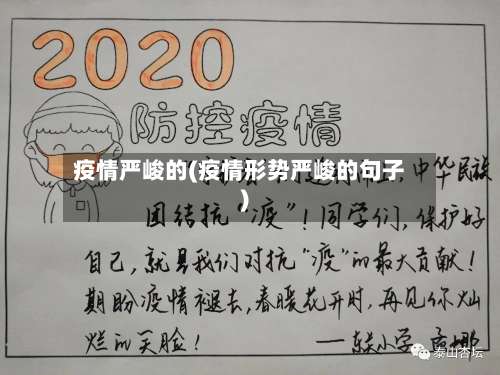 2020
防控疫情
疫情严峻的(疫情形势严峻的句子
)
中华民族
团结抗“疫”！同学们，保护好
自己，就是我们对抗“疫”的最大贡献！
期盼疫情褪去，春暖花开时，再见你灿
烂的笑脸！
——东关小学
泰山杏坛